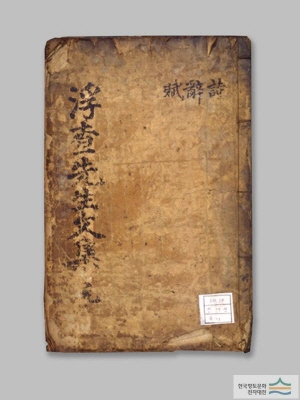 浮査先生文集 元
詩辭賦
한국향토문화
전자대전